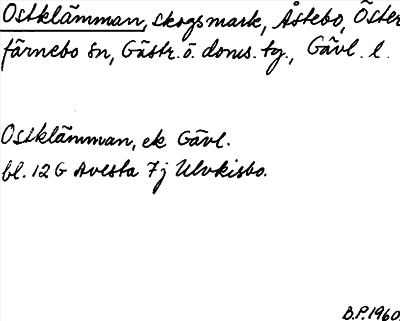 Ostklämman, skogsmark, Åstebo, Öster
färnebo sn, Gästr. ö. doms. tg., Gävl. l.
Ostklämman, ek Gävl.
bl. 12 G Avesta 7j Ulvkisbo.
B.P. 1960.